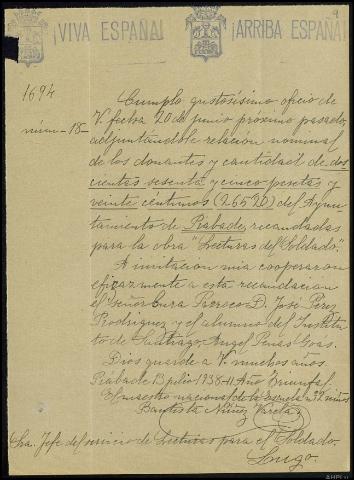 ¡VIVA ESPAÑA! ¡ARRIBA ESPAÑA!
9
1694
núm-18-
Cumplo gustosísimo oficio de
V. fecha 20 de junio próximo pasado,
adjuntándole relación nominal
de los donantes y cantidad de dos
cientas sesenta y cinco pesetas y
veinte céntimos (265'20) del Ayun-
tamiento de Rábade, recaudadas
para la obra "Lecturas del Soldado".
A invitación mía cooperaron
eficazmente a esta recaudación
el Señor Cura Párroco D. José Pérez
Rodríguez y el alumno del Institu-
to de Santiago, Angel Penas Goas.
Dios guarde a V. muchos años.
Rábade 13 julio 1938-II Año Triunfal.
El maestro nacional de la escuela nº 2 niños
Bautista Núñez Varela
Sra. Jefe del servicio de Lecturas para el Soldado.
Lugo.
AHPLU